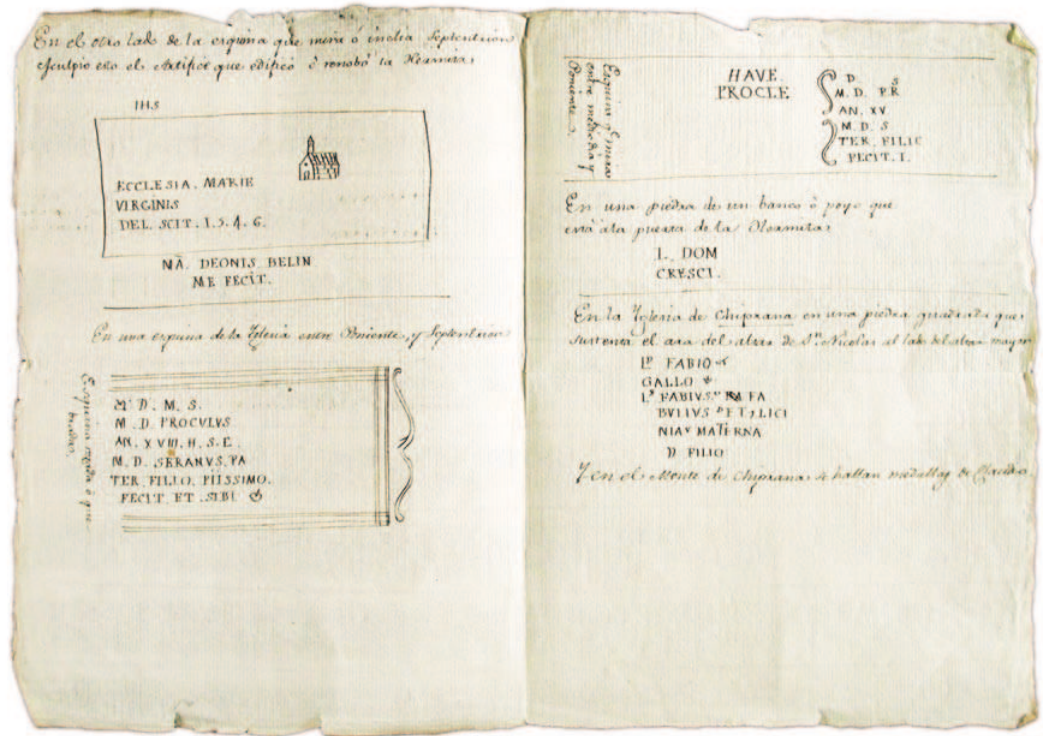 En el otro lado de la esquina que mira ò inclia Septentrion
esculpio esto el Artifice que edificó ò renobó la Hermita.
IHS
ECCLESIA . MARIE
VIRGINIS
DEL . SCIT . 1.5.4.6.
NÃ. DEONIS. BELIN
ME FECÌT.
En una esquina de la Iglesia entre Poniente, y Septentrion
Esquina
M D. M. S.
M. D. PROCVLVS
AN. XVIII. H. S. E.
M. D. SERANVS. PA
TER. FILIO. PIISSIMO.
FECIT. ET. SIBI
Esquina q.e mira
entre mediodia y
Poniente.
HAVE.
PROCLE
D. S
M. D. PR
AN. XV
M. D. S
TER. FILIC
FECIT. I.
En una piedra de un banco ò poyo que
està ala puerta de la Hermita.
L. DOM
CRESCI.
En la Iglesia de Chiprana en una piedra quadrada que
sustenta el ara del altar de Sn. Nicolas al lado del altar mayor
Lº FABIO
GALLO
L. FABIVS. PA FA
BVLIVS ET LICI
NIA MATERNA
D FILIO
Y en el Monte de Chiprana se hallan medallas de Claudio